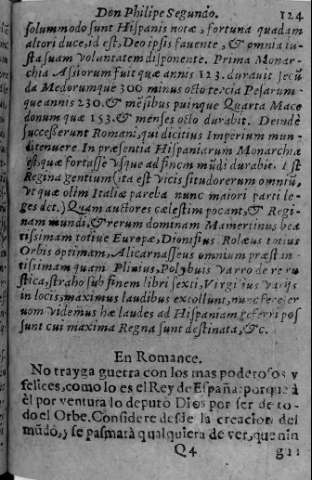 Don Philipe Segundo. 124
solummodo sunt Hispanis notæ, fortuna quadam
altori duce, id est, Deo ipsis fauente, & omnia iu-
sta suam voluntatem disponente. Prima Monar-
chia Assiorum fuit quæ annis 123. durauit secũ
da Medorumque 300 minus octo tertia Pesarum-
que annis 230. & mẽsibus puinque Quarta Mace
donum quæ 153. & menses octo durabit. Deindè
successerunt Romani, qui dicitius Imperium mun-
ditenuere. In præsentia Hispantarum Monarchia
est, quæ fortusse vsque ad finem mũdi durabit. Ist
Regina gentium (ita est vicis situdorerum omniũ,
vt quæ olim Italiæ pareba nunc maiori parti le-
ges det.) Quam auctores cælestim pocant, & Regi-
nam mundi, & rerum dominam Mamertinus bea
tissimam totiue Europæ, Dionisius Rolæus totius
Orbis optimam, Alicarnasseus omnium præst in-
tissimam quam Plinius, Polybuis Varro de re ru
stica, strabo sub finem libri sexti, Virgilius varijs
in locis, maximus laudibus excollunt, nunc ferejer
uom videmus hæ laudes ad Hispaniam eferri pos
sunt cui maxima Regna sunt destinata, &c.
En Romance.
No trayga guerra con los mas poderosos y
felices, como lo es el Rey de España: porque à
èl por ventura lo deputò Dios por ser de to-
do el Orbe. Considere desde la creacion del
mũdo, y se pasmarà qualquiera de ver, que nin
Q4 gun